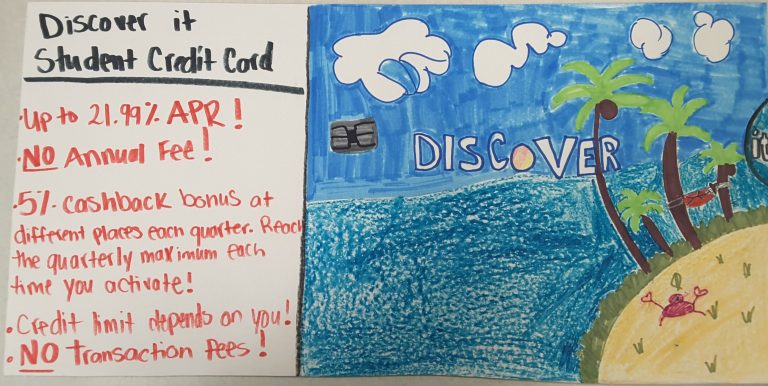 Discover it
Student Credit Card
•Up to 21.99% APR!
•NO Annual Fee!
•5% cashback bonus at
different places each quarter. Reach
the quarterly maximum each
time you activate!
•Credit limit depends on you!
•NO Transaction Fees!
DISCOVER
it